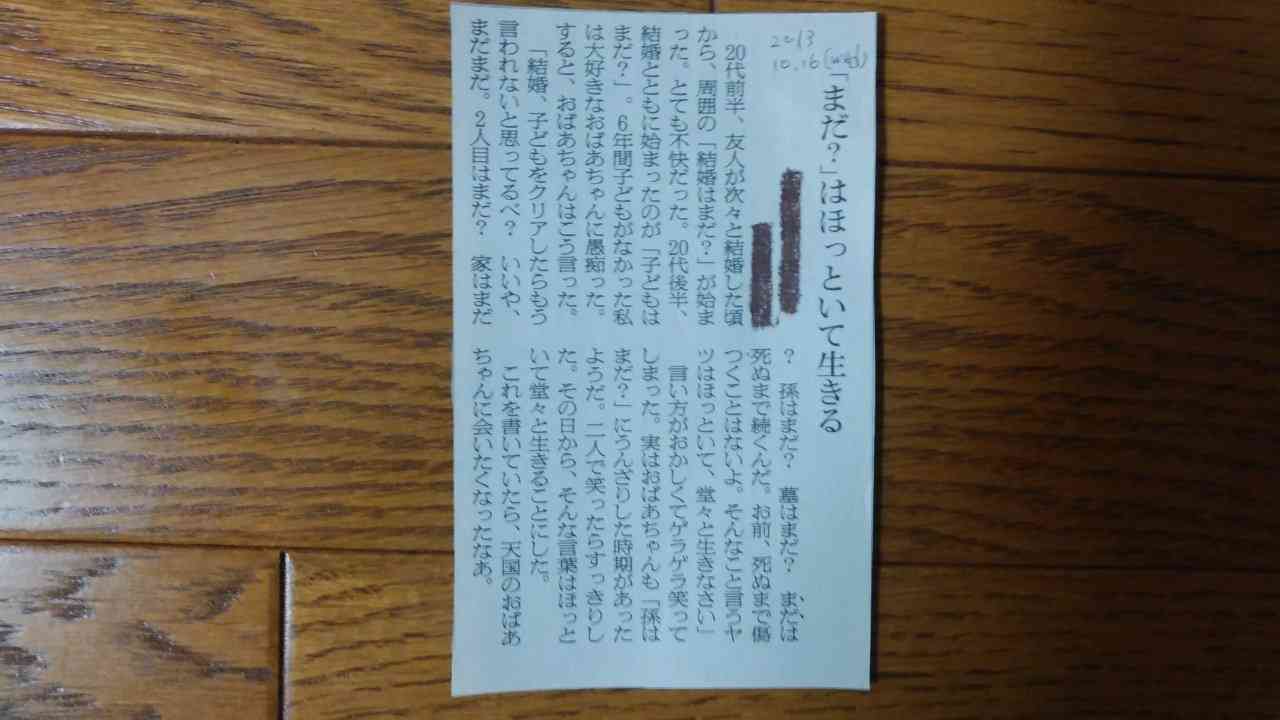 2013
10.16(wed)
「まだ?」はほっといて生きる
20代前半、友人が次々と結婚した頃
から、周囲の「結婚はまだ?」が始ま
った。とても不快だった。20代後半、
結婚とともに始まったのが「子どもは
まだ?」。6年間子どもがなかった私
は大好きなおばあちゃんに愚痴った。
すると、おばあちゃんはこう言った。
「結婚、子どもをクリアしたらもう
言われないと思ってるべ? いいや、
まだまだ。2人目はまだ? 家はまだ
? 孫はまだ? 墓はまだ? まだは
死ぬまで続くんだ。お前、死ぬまで傷
つくことはないよ。そんなこと言うヤ
ツはほっといて、堂々と生きなさい」
言い方がおかしくてゲラゲラ笑って
しまった。実はおばあちゃんも「孫は
まだ?」にうんざりした時期があった
ようだ。二人で笑ったらすっきりし
た。その日から、そんな言葉はほっと
いて堂々と生きることにした。
これを書いていたら、天国のおばあ
ちゃんに会いたくなったなあ。